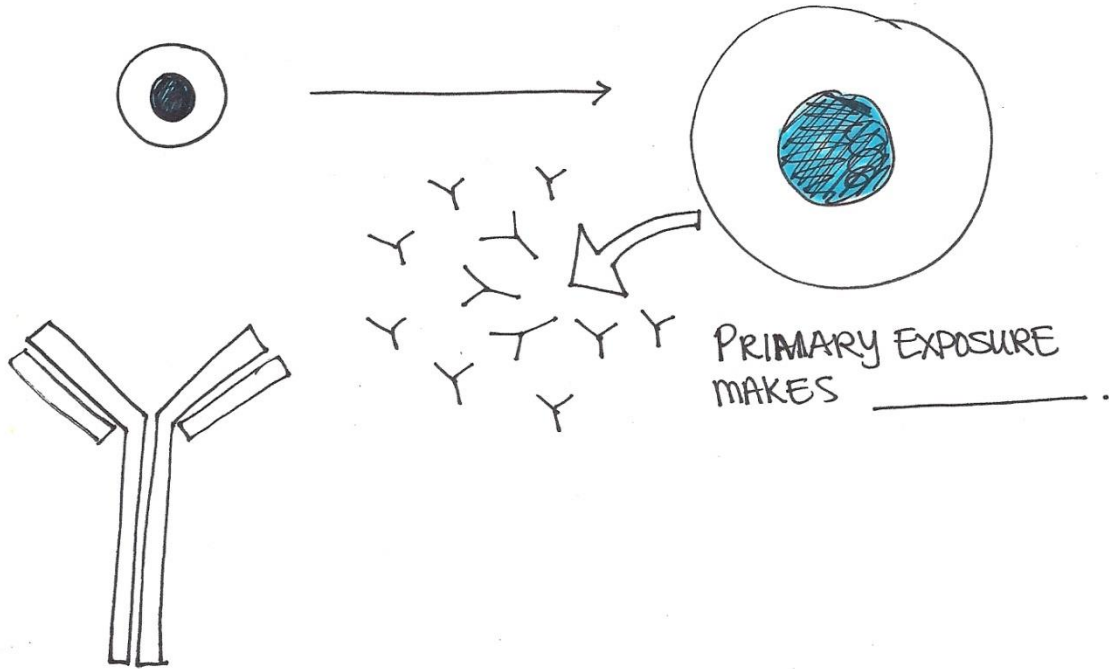 PRIMARY EXPOSURE
MAKES __________.